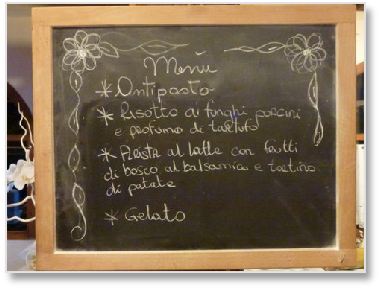 Menù
* Antipasto
* Risotto ai funghi porcini
e profumo di tartufo
* Arista al latte con frutti
di bosco al balsamico e tortino
di patate
* Gelato